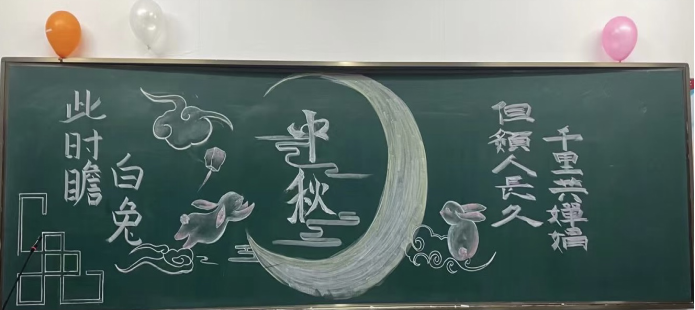 此时瞻
白兔
中秋
但願人長久
千里共嬋娟